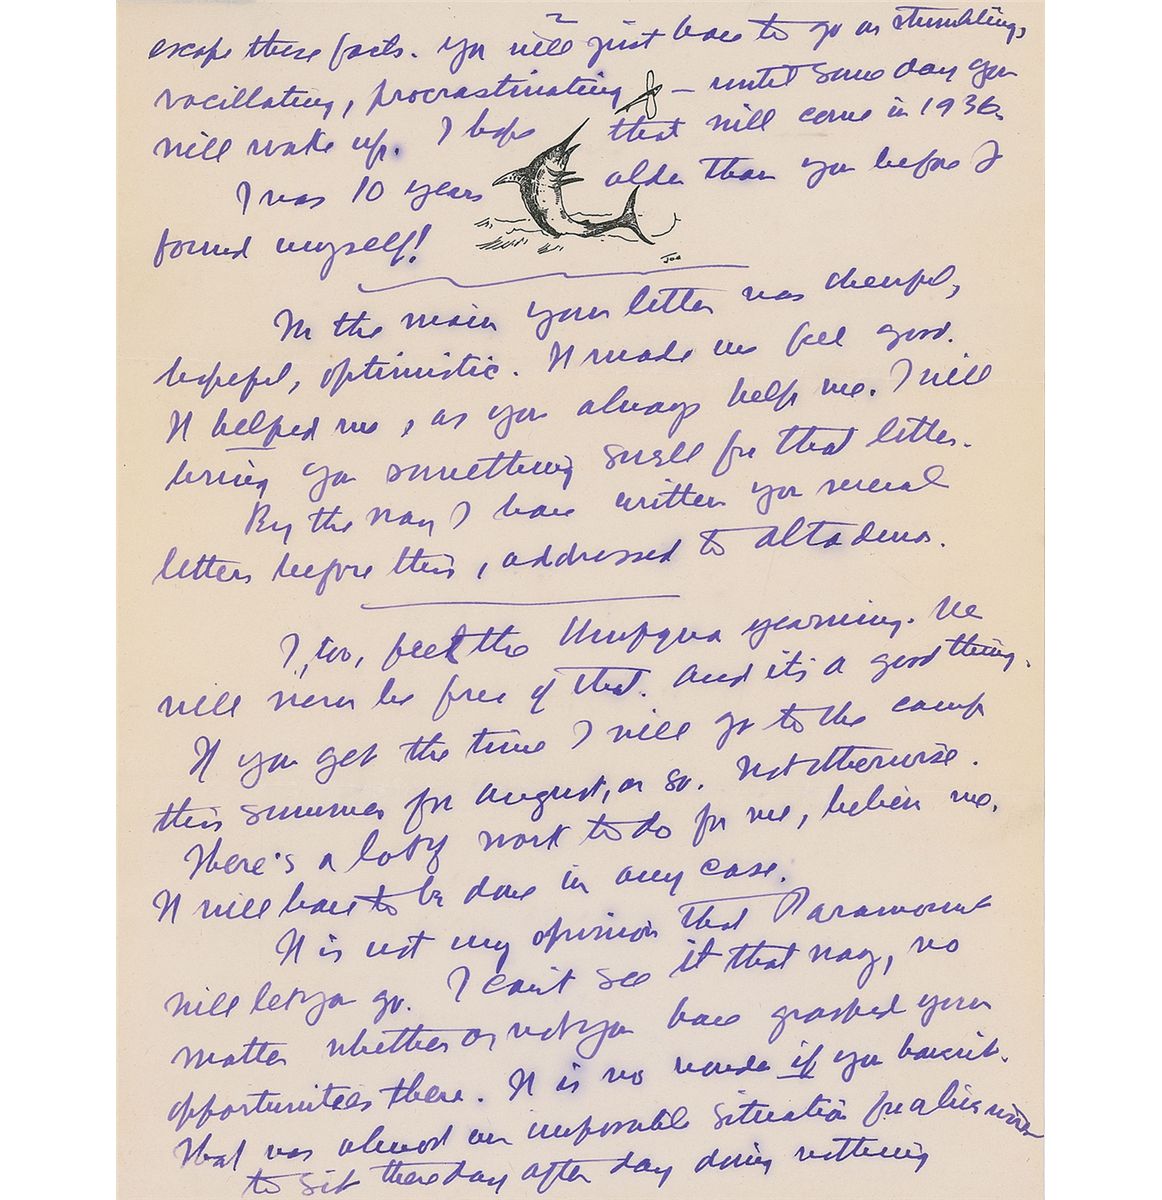 2
escape these facts. You will just have to go on stumbling,
vacillating, procrastinating — until some day you
will wake up. I hope that will come in 1936.
I was 10 years older than you before I
found myself!
Joe
In the main your letter was cheerful,
hopeful, optimistic. It made me feel good.
It helped me, as you always help me. I will
bring you something swell for that letter.
By the way I have written you several
letters before this, addressed to Altadena.
I, too, feel the Umpqua yearning. We
will never be free of that. And it's a good thing.
If you get the time I will go to the camp
this summer for August, or so. Not otherwise.
There's a lot of work to do for me, believe me.
It will have to be done in any case.
It is not my opinion that Paramount
will let you go. I can't see it that way, no
matter whether or not you have grasped your
opportunities there. It is no wonder if you haven't.
That was almost an impossible situation for a live
to sit there day after day doing nothing